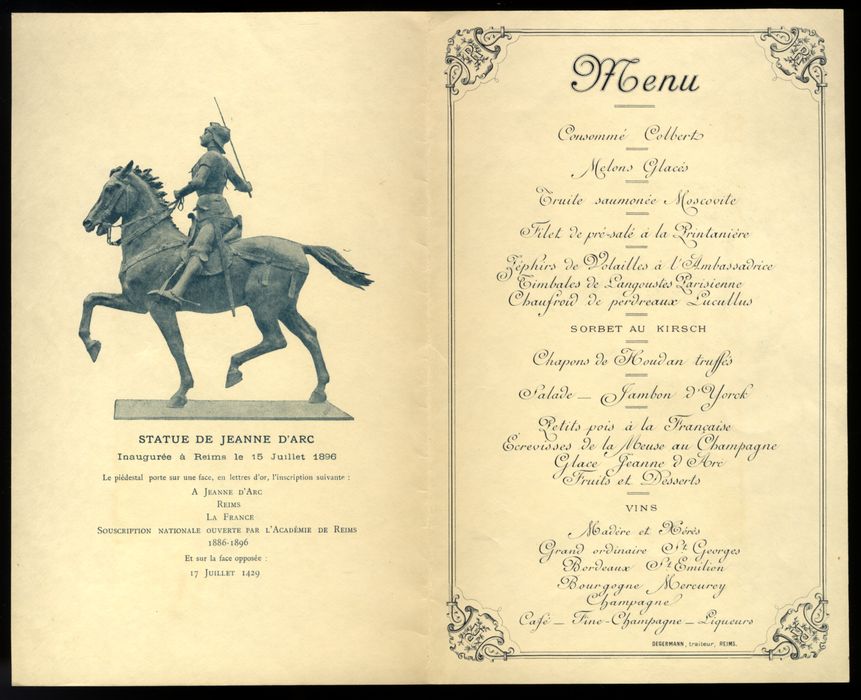 STATUE DE JEANNE D'ARC
Inaugurée à Reims le 15 Juillet 1896
Le piédestal porte sur une face, en lettres d'or, l'inscription suivante :
A JEANNE D'ARC
REIMS
LA FRANCE
SOUSCRIPTION NATIONALE OUVERTE PAR L'ACADÉMIE DE REIMS
1886-1896
Et sur la face opposée :
17 JUILLET 1429
Menu
Consommé Colbert
Melons Glacés
Truite saumonée Moscovite
Filet de pré-salé à la Printanière
Zéphirs de Volailles à l'Ambassadrice
Timbales de Langoustes Parisienne
Chaufroid de perdreaux Lucullus
SORBET AU KIRSCH
Chapons de Houdan truffés
Salade _ Jambon d'Yorck
Petits pois à la Française
Ecrevisses de la Meuse au Champagne
Glace Jeanne d'Arc
Fruits et Desserts
VINS
Madère et Xérès
Grand ordinaire St Georges
Bordeaux St Emilion
Bourgogne Mercurey
Champagne
Café _ Fine-Champagne _ Liqueurs
DEGERMANN, traiteur, REIMS.